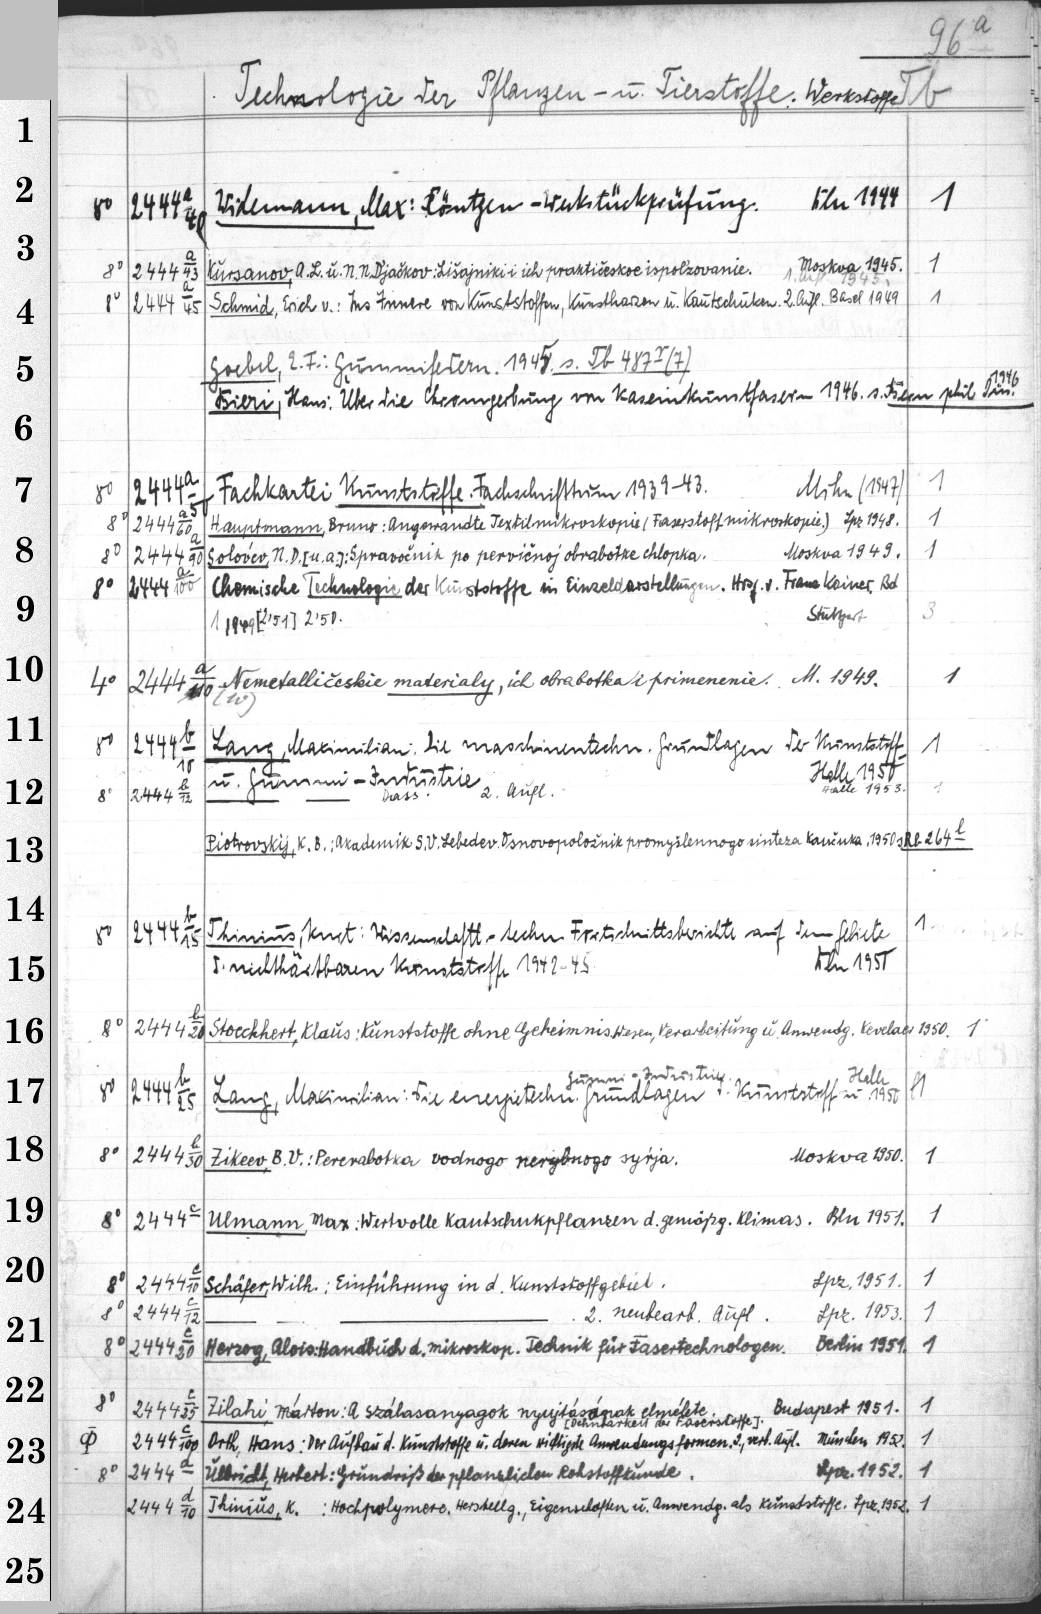 96 a
Technologie der Pflanzen- u. Tierstoffe. Werkstoffe Tb
1
2
8° 2444 a/40 Widemann, Max: Röntgen-Werkstückprüfung. Kln 1944 1
3
8° 2444 a/43 Kursanov, A. L. u. N. N. Djačkov: Lišajniki i ich praktičeskoe ispol'zovanie. Moskva 1945. 1
1. Aufl. 1945.
4
8° 2444 a/45 Schmid, Erich v.: Ins Innere von Kunststoffen, Kunstharzen u. Kautschuken. 2. Aufl. Basel 1949 1
5
Goebel, E. F.: Gummifedern. 1945. s. Tb 487 r (7)
Bieri, Hans: Über die Chromgerbung von Kaseinkunstfasern 1946. s. Bern phil Diss. 1946
6
7
8° 2444 a/50 Fachkartei Kunststoffe. Fachschrifttum 1939-43. Mchn (1947) 1
8° 2444 a/60 Hauptmann, Bruno: Angewandte Textilmikroskopie (Faserstoffmikroskopie.) Lpz 1948. 1
8
8° 2444 a/90 Solov'ev, N. D. [u. a.]: Spravočnik po pervičnoj obrabotke chlopka. Moskva 1949. 1
8° 2444 a/100 Chemische Technologie der Kunststoffe in Einzeldarstellungen. Hrsg. v. Franz Kainer, Bd
9
1 1949 [2'51] 2'50. Stuttgart 3
10
4° 2444 a/110 Nemetalličeskie materialy, ich obrabotka i primenenie. M. 1949. 1
(10)
11
8° 2444 b/10 Lang, Maximilian: Die maschinentechn. Grundlagen der Kunststoff-
u. Gummi-Industrie Halle 1950 1
12
8° 2444 b/12 Dass. 2. Aufl. Halle 1953. 1
13
Piotrovskij, K. B.: Akademik S. V. Lebedev. Osnovopoložnik promyšlennogo sinteza kaučuka. 1950 s. Rb 264 l
14
8° 2444 b/15 Thinius, Kurt: Wissenschaftl.-techn. Fortschrittsberichte auf dem Gebiete 1
15
d. nichthärtbaren Kunststoffe 1942-45 Kln 1951
16
8° 2444 b/20 Stoeckhert, Klaus: Kunststoffe ohne Geheimnis. Wesen, Verarbeitung u. Anwendg. Kevelaer 1950. 1
17
8° 2444 b/25 Lang, Maximilian: Die energietechn. Grundlagen d. Kunststoff- u. Gummi-Industrie. Halle 1950 1
18
8° 2444 b/30 Zikeev, B. V.: Pererabotka vodnogo nerybnogo syr'ja. Moskva 1950. 1
19
8° 2444 c Ulmann, Max: Wertvolle Kautschukpflanzen d. gemäßg. Klimas. Bln 1951. 1
20
8° 2444 c/10 Schäfer, Wilh.: Einführung in d. Kunststoffgebiet. Lpz. 1951. 1
8° 2444 c/12 2. neubearb. Aufl. Lpz. 1953. 1
21
8° 2444 c/20 Herzog, Alois: Handbuch d. mikroskop. Technik für Fasertechnologen. Berlin 1951. 1
22
8° 2444 c/25 Zilahi, Márton: A szálasanyagok nyujtásának elmélete. Budapest 1951. 1
[Dehnbarkeit der Faserstoffe].
23
2444 c/100 Orth, Hans: Der Aufbau d. Kunststoffe u. deren wichtigste Anwendungsformen. 2., verb. Aufl. München 1952. 1
8° 2444 d Ulbricht, Herbert: Grundriß der pflanzlichen Rohstoffkunde. Lpz. 1952. 1
24
2444 d/10 Thinius, K.: Hochpolymere. Herstellg., Eigenschaften u. Anwendg. als Kunststoffe. Lpz. 1952. 1
25